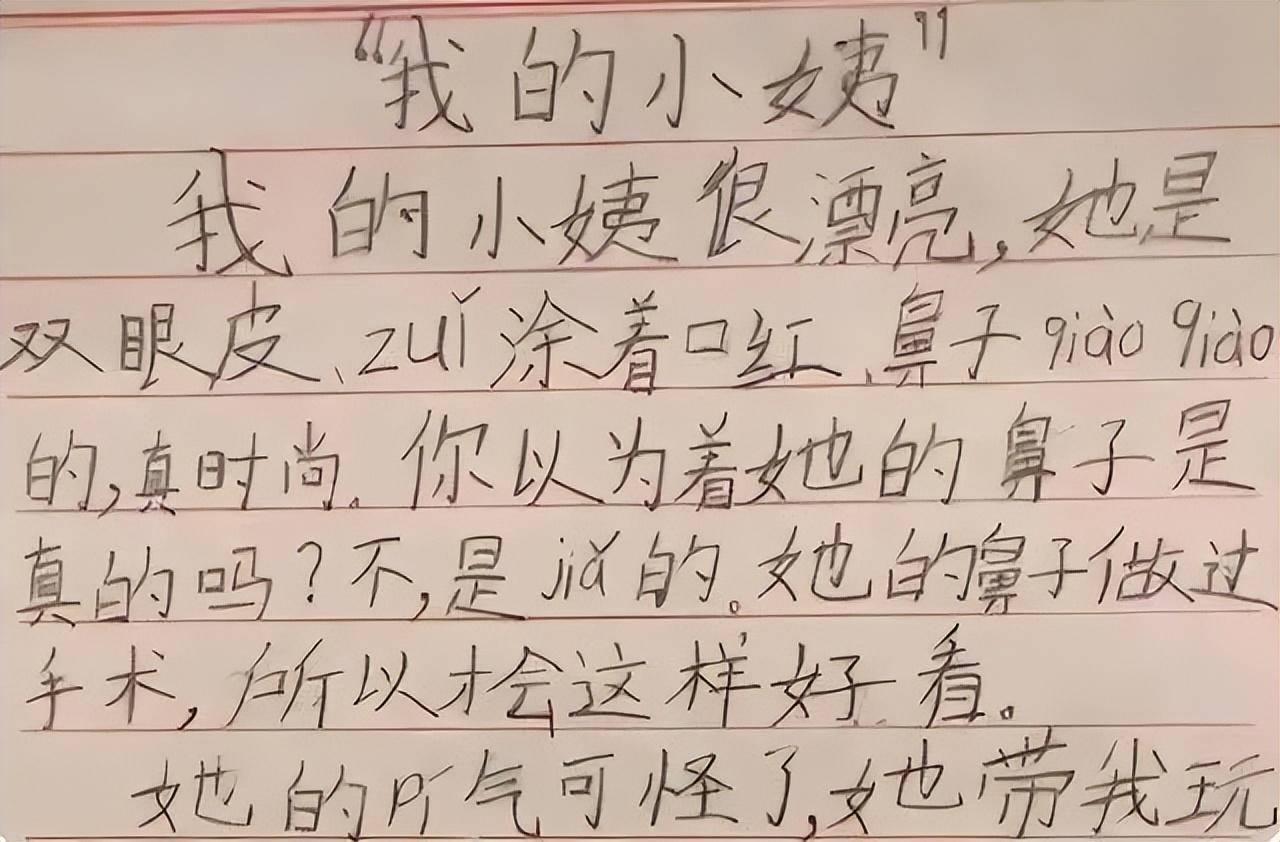 “我的小姨”
我的小姨很漂亮,她是
双眼皮、zuǐ涂着口红、鼻子qiào qiào
的,真时尚。你以为着她的鼻子是
真的吗?不,是jiǎ的。她的鼻子做过
手术,所以才会这样好看。
她的pí气可怪了,她带我玩